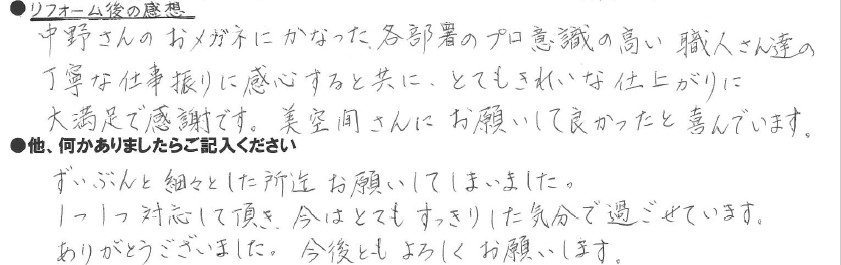 ●リフォーム後の感想
中野さんのおメガネにかなった、各部署のプロ意識の高い職人さん達の
丁寧な仕事振りに感心すると共に、とてもきれいな仕上がりに
大満足で感謝です。美空間さんにお願いして良かったと喜んでいます。
●他、何かありましたらご記入ください
ずいぶんと細々とした所迄お願いしてしまいました。
1つ1つ対応して頂き、今はとてもすっきりした気分で過ごせています。
ありがとうございました。今後ともよろしくお願いします。